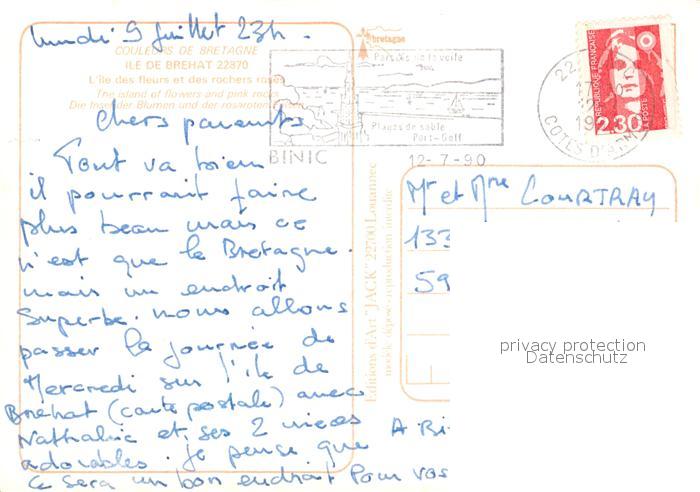 lundi 9 juillet 23h.
COULEURS DE BRETAGNE
ILE DE BREHAT 22870
L'île des fleurs et des rochers roses
The island of flowers and pink rocks
Die Insel der Blumen und der rosaroten
chers parents
Tout va bien
il pourrait faire
plus beau mais ce
n'est que la Bretagne.
mais un endroit
superbe. nous allons
passer la journée de
Mercredi sur l'île de
Bréhat (carte postale) avec
Nathalie et ses 2 nièces
adorables. je pense que
ce sera un bon endroit Pour vos
bretagne
Paradis de la voile
Plages de sable
Port - Golf
BINIC
12-7-90
22
19
COTES D'ARM
REPUBLIQUE FRANÇAISE
LA POSTE
2,30
Editions d'Art "JACK" 22700 Louannec
modèle déposé - reproduction interdite
Mr et Mme COURTRAY
133
59
A Bi
privacy protection
Datenschutz